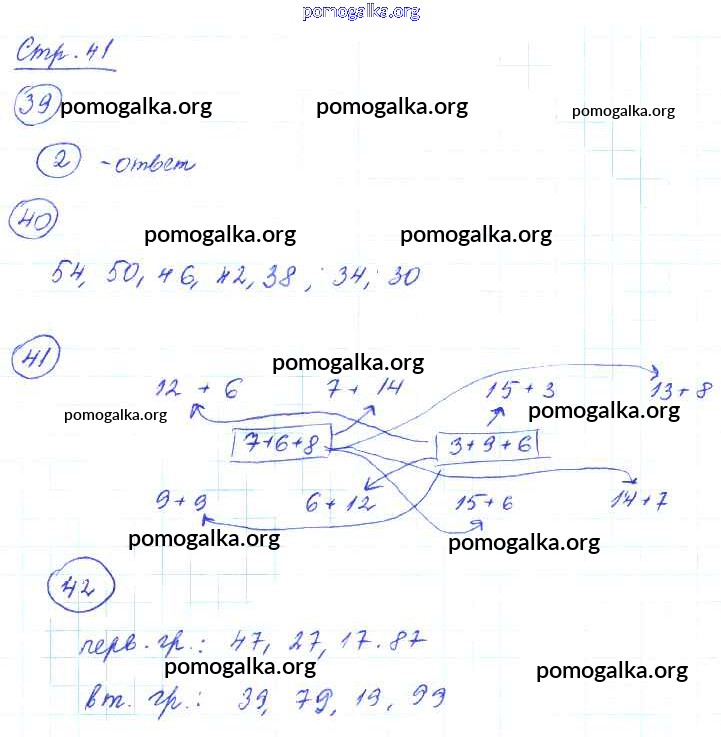 pomogalka.org
Стр. 41
39 pomogalka.org pomogalka.org pomogalka.org
2 - ответ
40
pomogalka.org pomogalka.org
54, 50, 46, 42, 38, 34, 30
41
pomogalka.org
12 + 6 7 + 14 15 + 3 13 + 8
pomogalka.org pomogalka.org
7+6+8 3+9+6
9+9 6+12 15+6 14+7
pomogalka.org pomogalka.org
42
перв. гр.: 47, 27, 17. 87
pomogalka.org pomogalka.org
вт. гр.: 39, 79, 19, 99